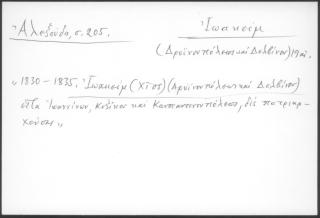 Ἀλεξούδη, σ. 205.
Ἰωακείμ
(Δρυϊνουπόλεως καὶ Δελβίνου) 19 αἰ.
„ 1830 - 1835. Ἰωακείμ (Χῖος) (Δρυϊνουπόλεως καὶ Δελβίνου)
εἶτα Ἰωαννίνων, Κυζίκου καὶ Κωνσταντινουπόλεως, δὶς πατριαρ-
χεύσας „